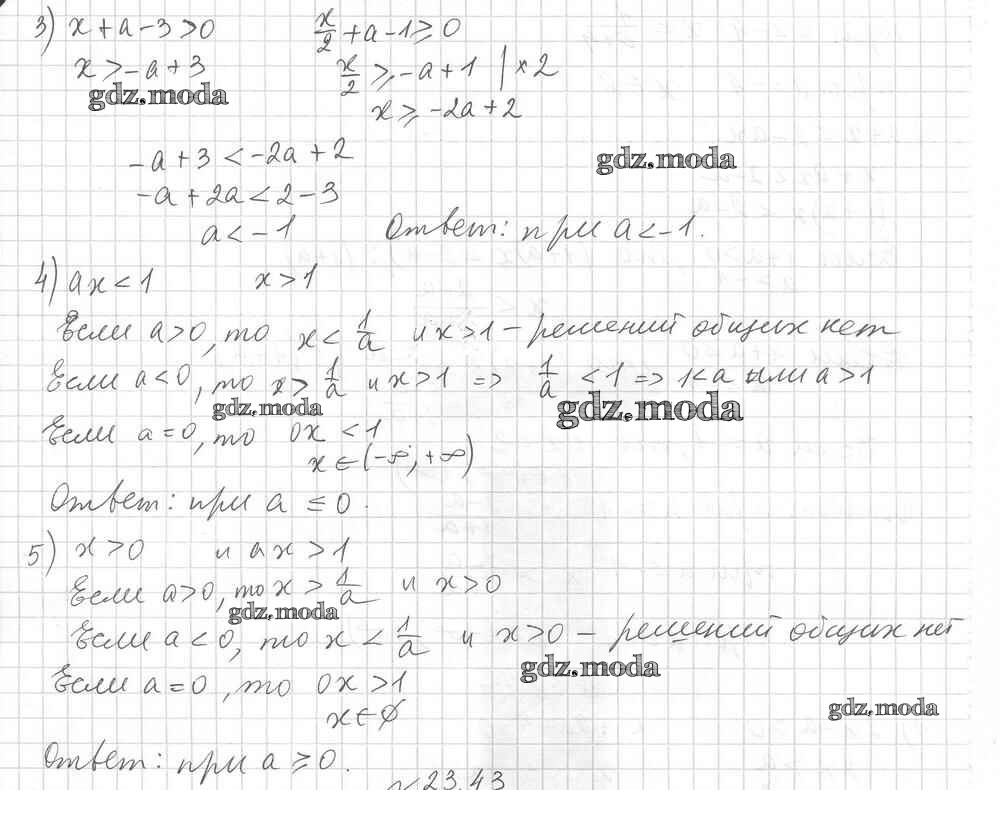 3) x + a - 3 > 0   x/2 + a - 1 ≥ 0
x > -a + 3   x/2 ≥ -a + 1 | × 2
gdz.moda
x ≥ -2a + 2
-a + 3 < -2a + 2
gdz.moda
-a + 2a < 2 - 3
a < -1   Ответ: при a < -1.
4) ax < 1   x > 1
Если a > 0, то x < 1/a и x > 1 - решений общих нет
Если a < 0, то x > 1/a и x > 1 => 1/a < 1 => 1 < a или a > 1
gdz.moda
gdz.moda
Если a = 0, то 0x < 1
x ∈ (-∞; +∞)
Ответ: при a ≤ 0.
5) x > 0 и ax > 1
Если a > 0, то x > 1/a и x > 0
gdz.moda
Если a < 0, то x < 1/a и x > 0 - решений общих нет
gdz.moda
Если a = 0, то 0x > 1
x ∈ ∅
gdz.moda
Ответ: при a ≥ 0.
№23.43